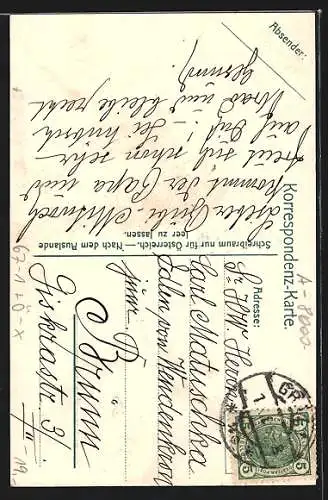 Absender:
Korrespondenz-Karte.
Schreibraum nur für Österreich. — Nach dem Auslande
leer zu lassen.
Lieber Gerbi! Mittwoch
kommt der Papa und
freut sich schon sehr
auf Euch! – Sei hübsch
brav und bleibe recht
gesund,
Adresse:
Sr. H. W. Herrn
Karl Matuschka
Edlen von Wendenkron
Brünn
Giskrastr. 3/II
5
5
A-8000
67-1+Ö-x
19.-